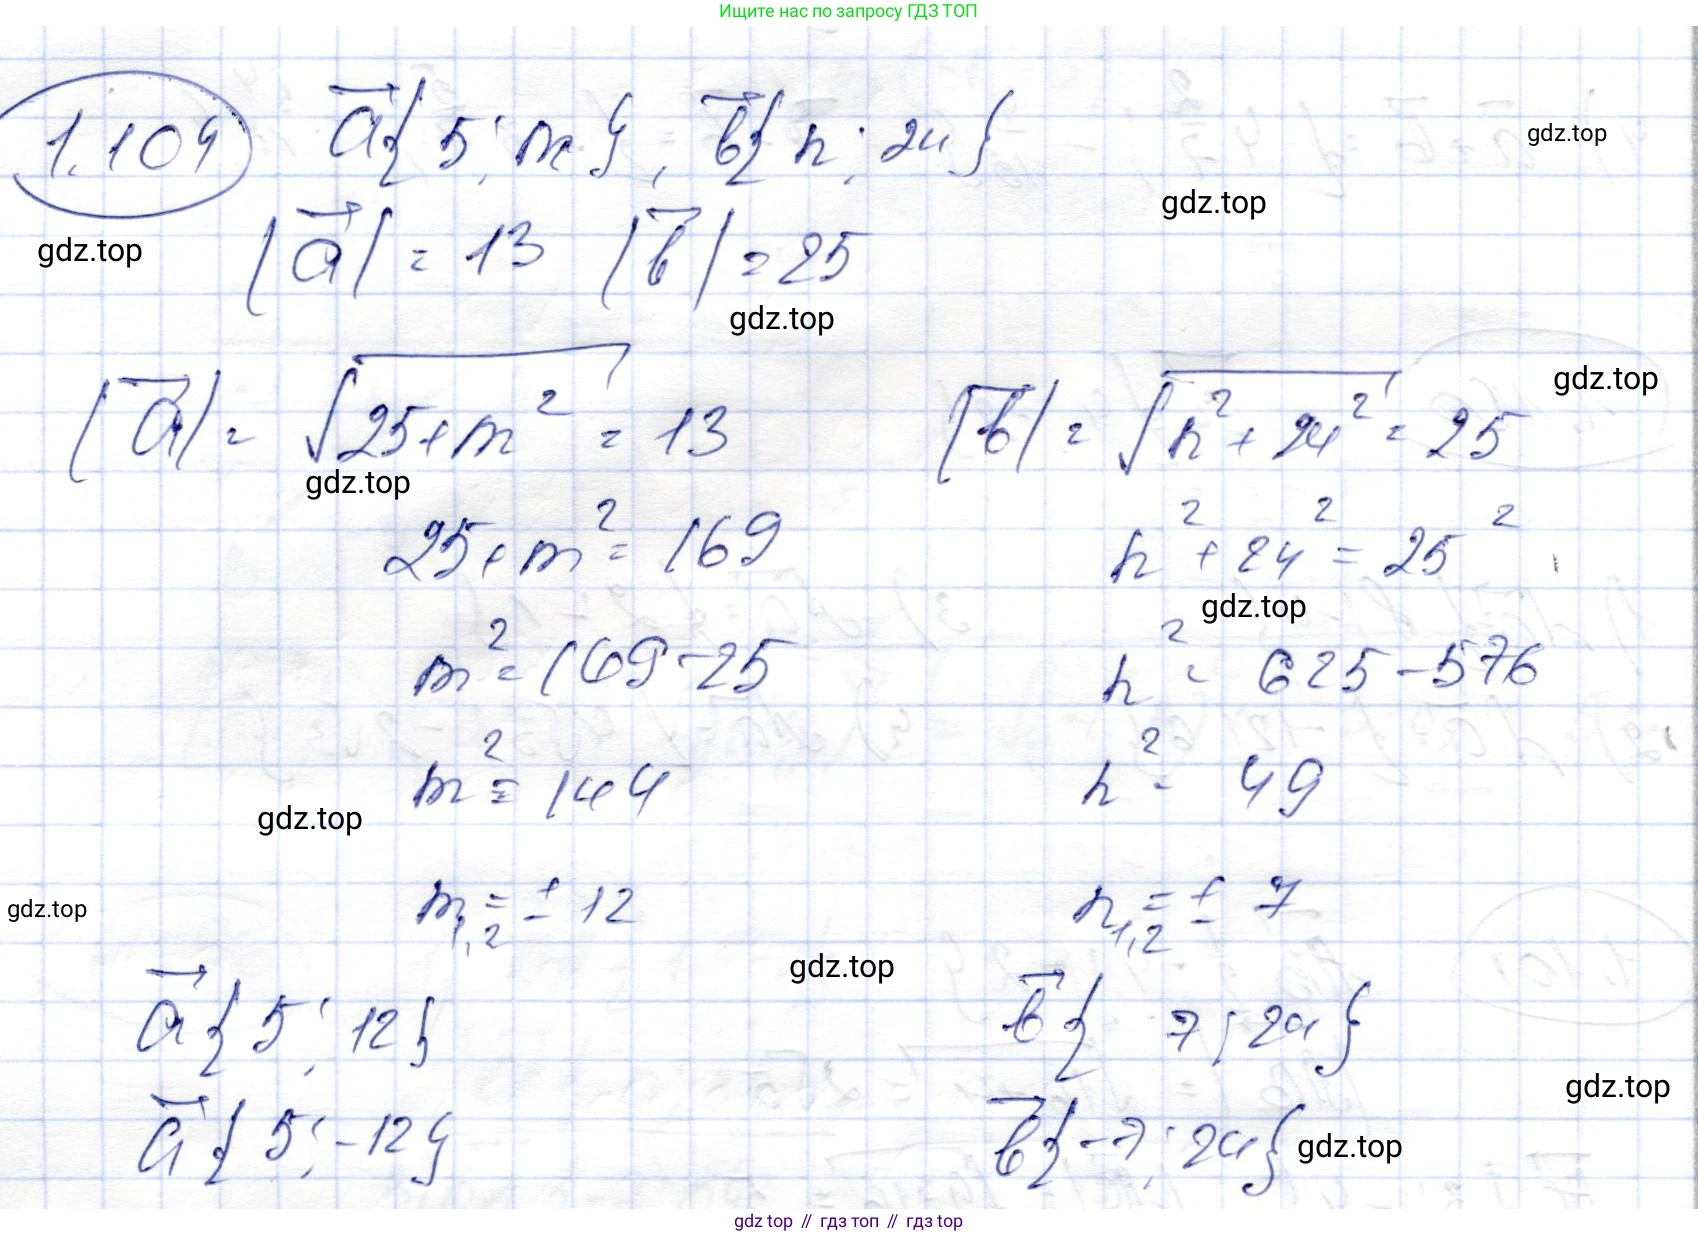 Ищите нас по запросу ГДЗ ТОП
1.104 a⃗{5; m}, b⃗{n; 24}
gdz.top
gdz.top
gdz.top
|a⃗| = 13 |b⃗| = 25
gdz.top
|a⃗| = √(25+m²) = 13 |b⃗| = √(n²+24²) = 25
gdz.top
gdz.top
25+m² = 169 n²+24² = 25²
gdz.top
m² = 169-25 n² = 625-576
m² = 144 n² = 49
gdz.top
m₁,₂ = ± 12 n₁,₂ = ± 7
gdz.top
gdz.top
a⃗{5; 12} b⃗{7; 24}
gdz.top
a⃗{5; -12} b⃗{-7; 24}
gdz.top
gdz top // гдз топ // гдз top